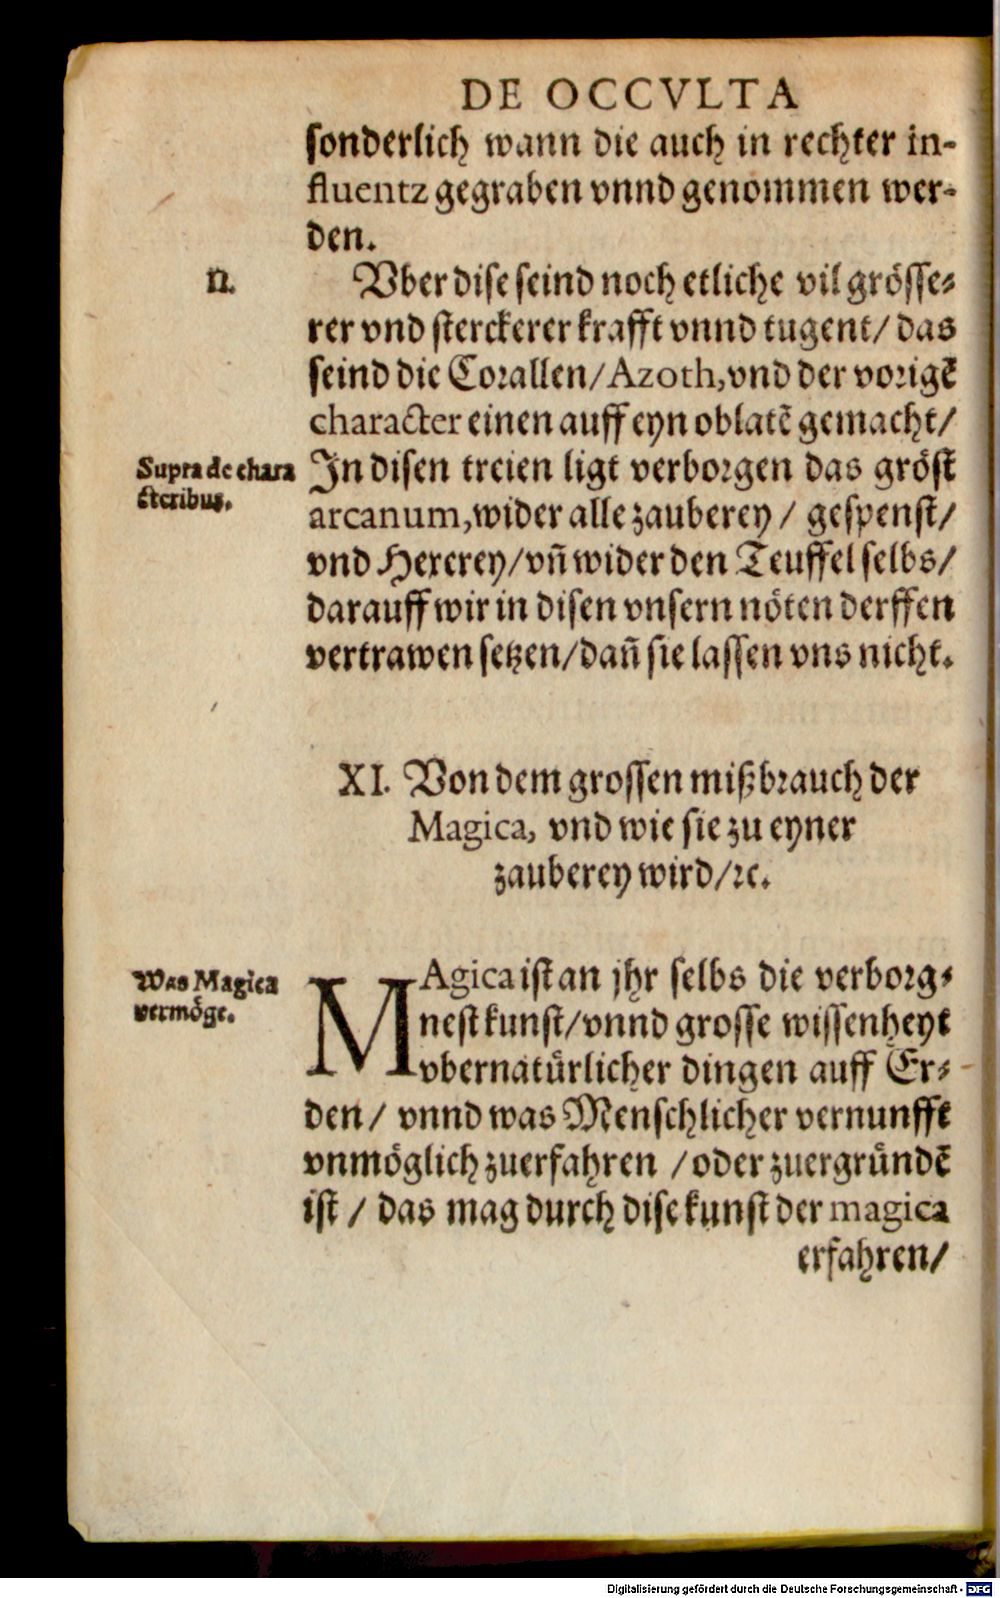 DE OCCVLTA
sonderlich wann die auch in rechter in-
fluentz gegraben vnnd genommen wer-
den.
n.
Vber dise seind noch etliche vil grösse-
rer vnd sterckerer krafft vnnd tugent/ das
seind die Corallen/Azoth, vnd der vorigẽ
character einen auff eyn oblatẽ gemacht/
Supra de chara
cteribus.
In disen treien ligt verborgen das gröst
arcanum, wider alle zauberey / gespenst/
vnd Hexerey/vñ wider den Teuffel selbs/
darauff wir in disen vnsern nöten derffen
vertrawen setzen/dañ sie lassen vns nicht.
XI. Von dem grossen mißbrauch der
Magica, vnd wie sie zu eyner
zauberey wird/ꝛc.
Was Magica
vermöge.
MAgica ist an jhr selbs die verborg-
nest kunst/vnnd grosse wissenheyt
vbernatürlicher dingen auff Er-
den/ vnnd was Menschlicher vernunfft
vnmöglich zuerfahren /oder zuergründẽ
ist / das mag durch dise kunst der magica
erfahren/
Digitalisierung gefördert durch die Deutsche Forschungsgemeinschaft - DFG